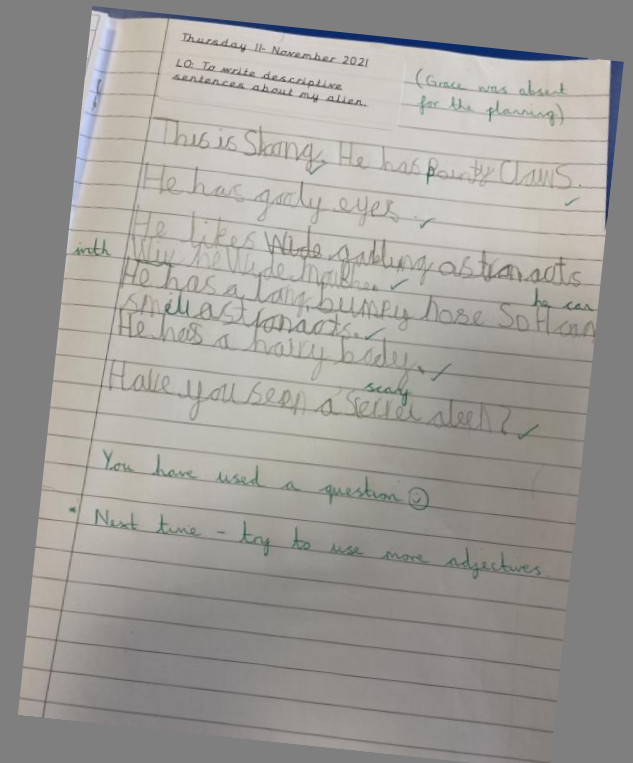 Thursday 11. November 2021
LO: To write descriptive
sentences about my alien.
(Grace was absent
for the planning)
This is Skong. He has pointy Claws.
He has gooly eyes.
He likes Wide gabling astronaots
with
he
he can
He has a long bumpy nose So H can
smell astronaots.
He has a hairy body.
scary
Have you seen a aleen?
You have used a question
* Next time - try to use more adjectives.